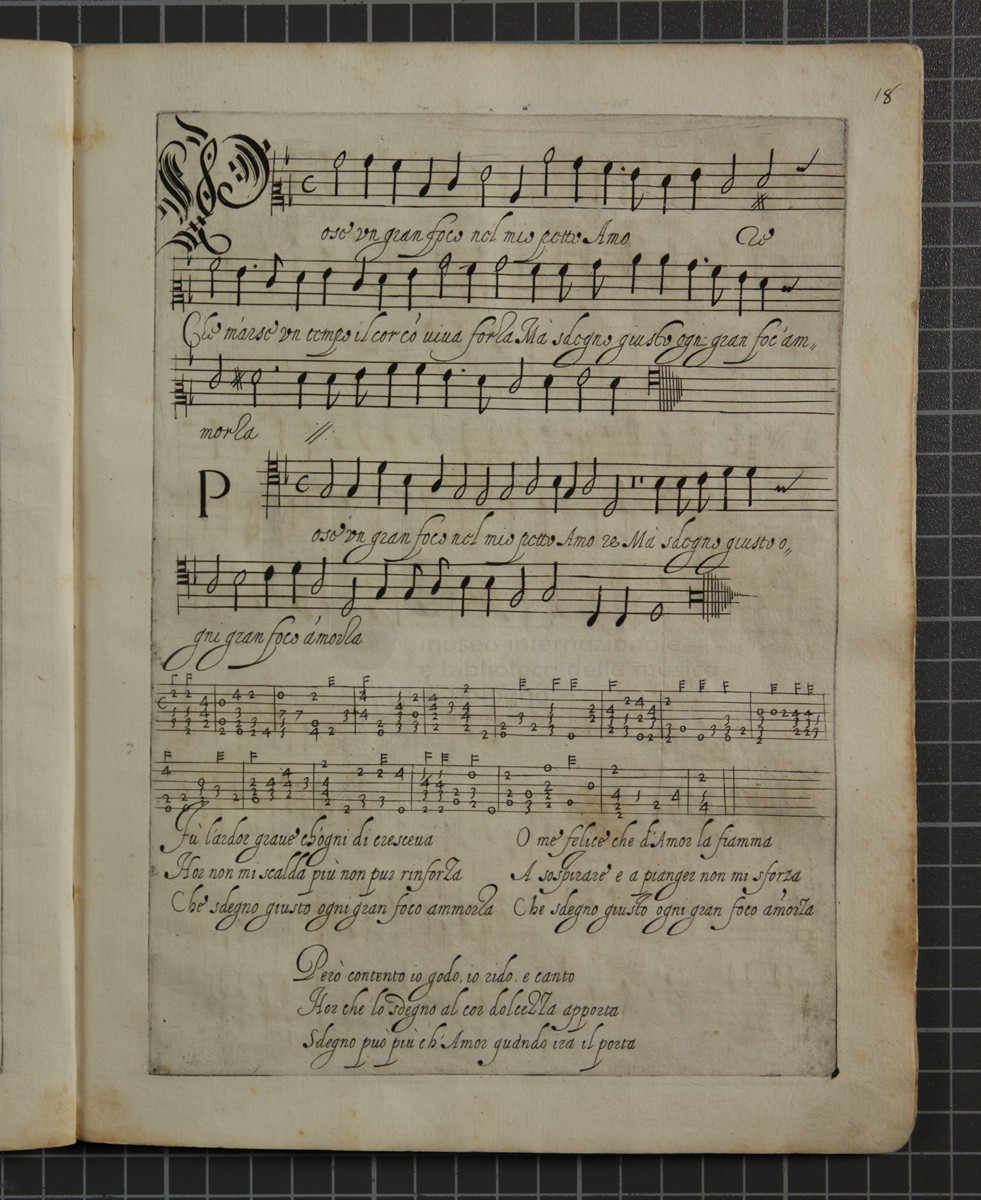 18
Pose vn gran foco nel mio petto Amo re
Che m'arse vn tempo il cor cō uiua forza Mà sdegno giusto ogni gran foc'am„
morza //:
P
ose vn gran foco nel mio petto Amo re Mà sdegno giusto o„
gni gran foco āmorza
museo internazionale
e biblioteca della musica
Fù l'ardor graue ch'ogni di cresceua
O me felice che d'Amor la fiamma
Hor non mi scalda più non pur rinforza
A sospirare e a pianger non mi sforza
Che sdegno giusto ogni gran foco ammorza
Che sdegno giusto ogni gran foco āmorza
Però contento io godo, io rido, e canto
Hor che lo sdegno al cor dolcezza apporta
Sdegno può più ch'Amor quando ira il porta